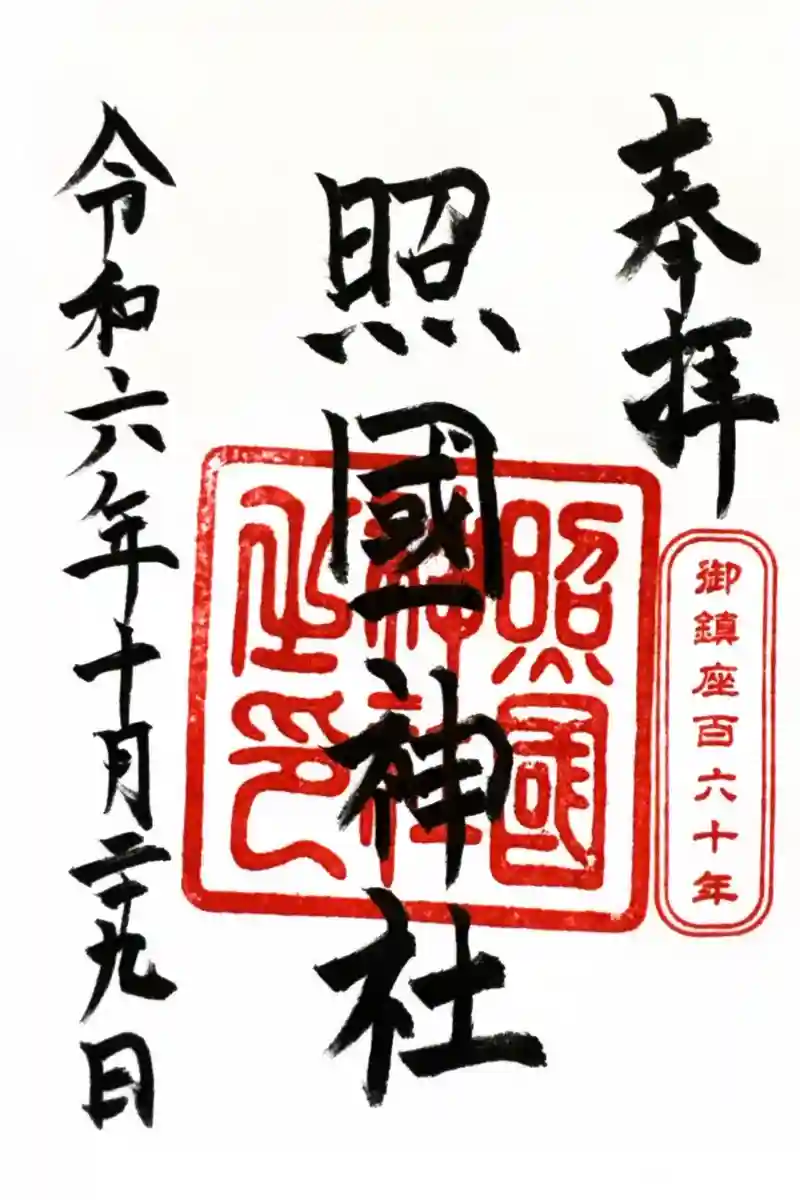 奉拝
御鎮座百六十年
照國神社
照國
神社
之印
令和六年十月二十九日